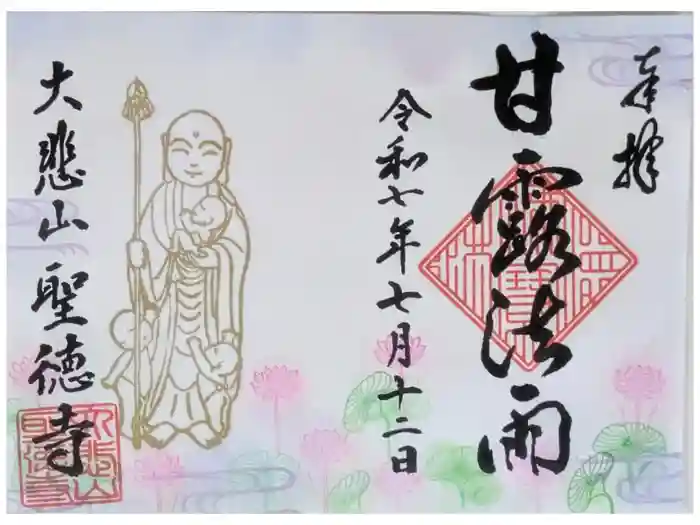 奉拝
甘露法雨
令和七年七月十二日
大悲山聖徳寺